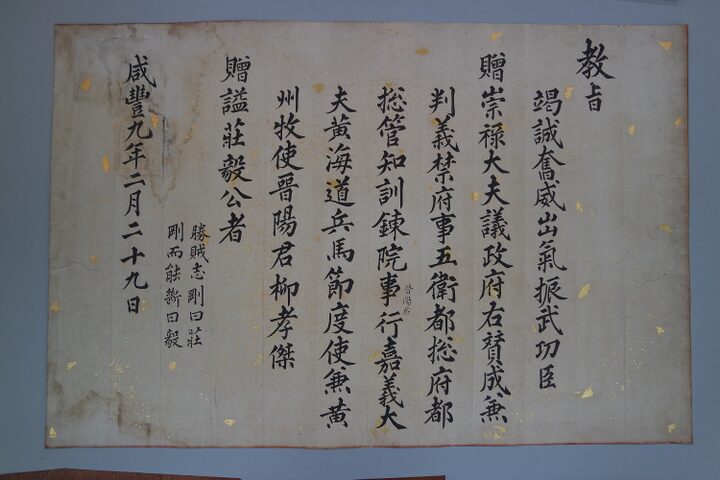 教旨
竭誠奮威出氣振武功臣
贈崇祿大夫議政府右贊成兼
判義禁府事五衛都摠府都
摠管知訓鍊院事行嘉義大
晋陽君
夫黃海道兵馬節度使兼黃
州牧使晋陽君柳孝傑
贈諡莊毅公者
勝賊志剛曰莊
剛而能斷曰毅
咸豐九年二月二十九日